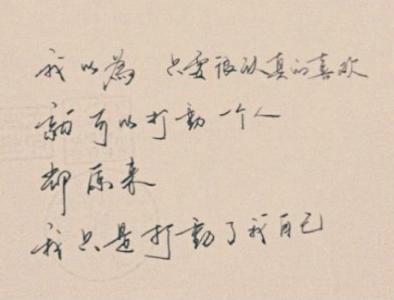 我以為 只要很认真的喜欢
就可以打動一个人
却原来
我只是打動了我自己